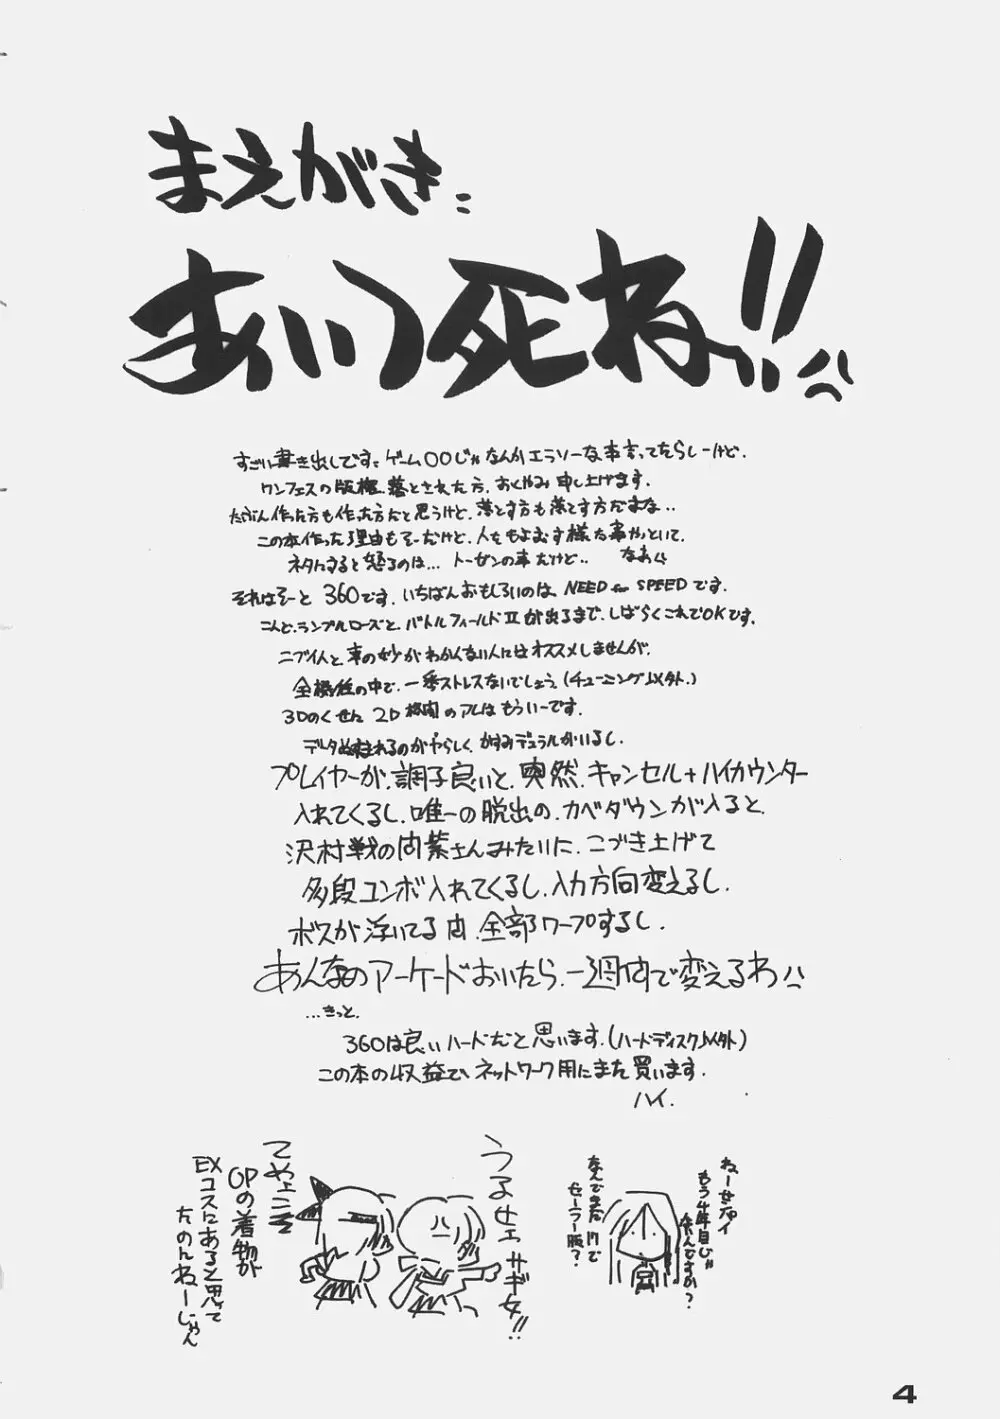 まえがき:
あいつ死ね!!
すごい書き出しです。ゲーム〇〇じゃなんかエラソーな事言ってたらしーけど、
ワンフェスの版権、落とされた方、おくやみ申し上げます。
たぶん作った方も作った方だと思うけど、落とす方も落とす方だまな..
この本作った理由もそーだけど、人をもよおす様な事やっといて、
ネタにすると怒るのは… トーゼンの事だけど.. なあ
それはそーと 360です。いちばんおもしろいのは、NEED for SPEEDです。
こんど、ランブルローズと、バトルフィールドIIが出るまで、しばらくこれでOKです。
ニブイ人と、車の妙がわかんない人にはオススメしませんが、
全機種の中で、一番ストレスないでしょう。(チューニング以外。)
3Dのくせに 2D格闘のアレはもういーです。
データぬすまれるのがやらしく、かすみデュラルがいるし、
プレイヤーが、調子良いと、突然、キャンセル+ハイカウンター
入れてくるし、唯一の脱出の、カベダウンが入ると、
沢村戦の内葉さんみたいに、こづき上げて
多段コンボ入れてくるし、入力方向変えるし、
ボスが浮いてる内、全部ワープするし、
あんなのアーケードおいたら、一週間で変えるわ
…きっと、
360は良いハードだと思います。(ハードディスク以外)
この本の収益で、ネットワーク用にまた買います。
ハイ.
ねーせんパイ
もう4年目じゃ
ないんですか?
なんでまだ
セーラー服?
うるせェサギ女!!
てやェ
OPの着物が
EXコスにあると思って
たのんねーじゃん
4